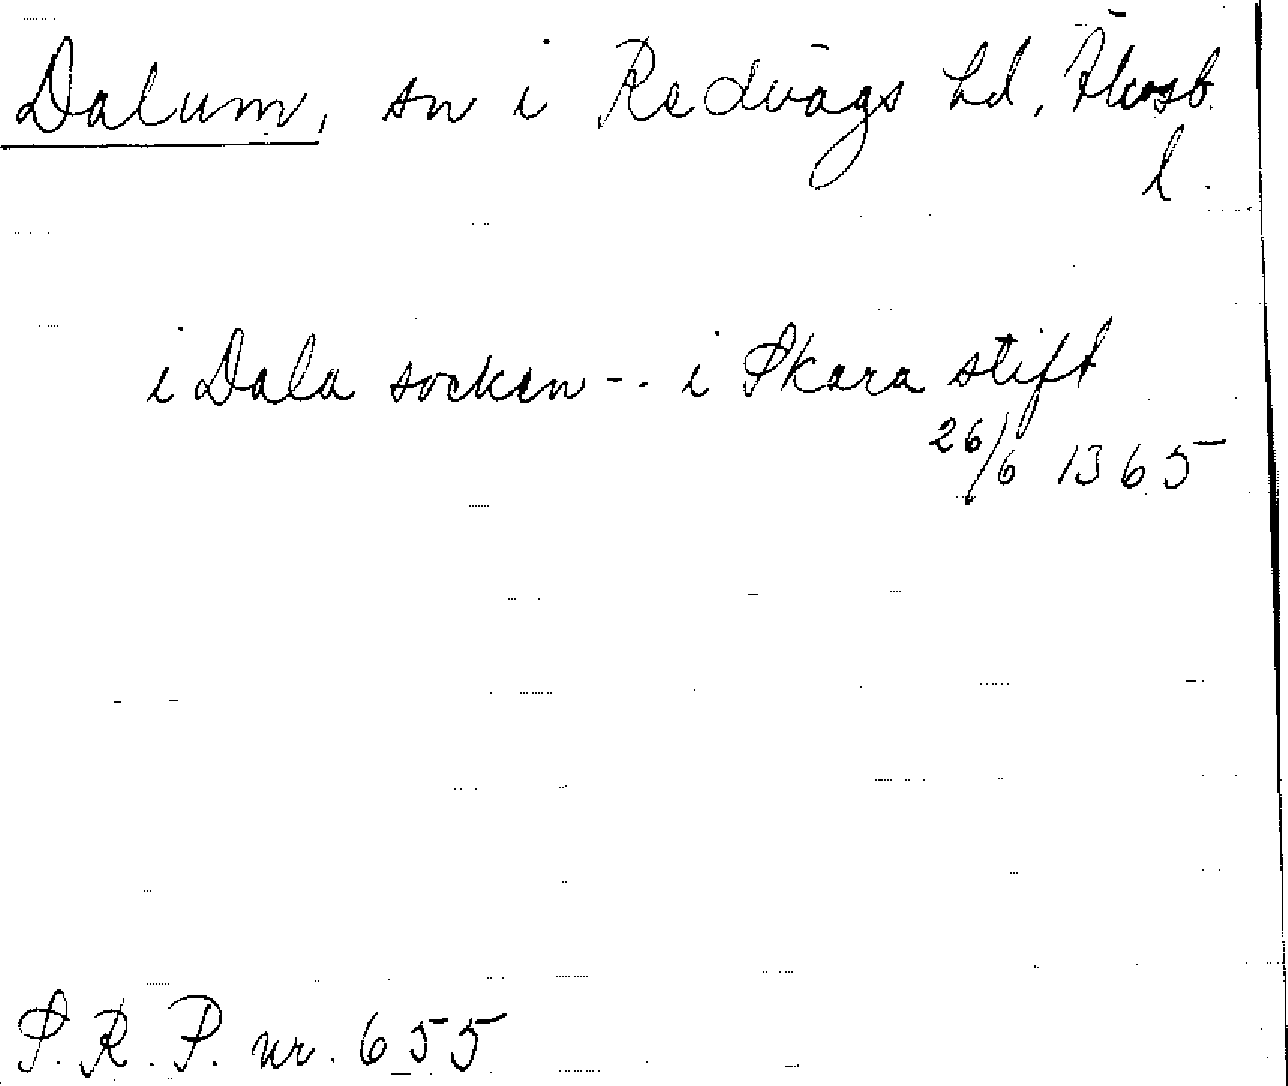 Dalum, sn i Redvägs hd, Älvsb.
l.
i Dala socken -- i Skara stift
26/6 1365
S.R.P. nr. 655